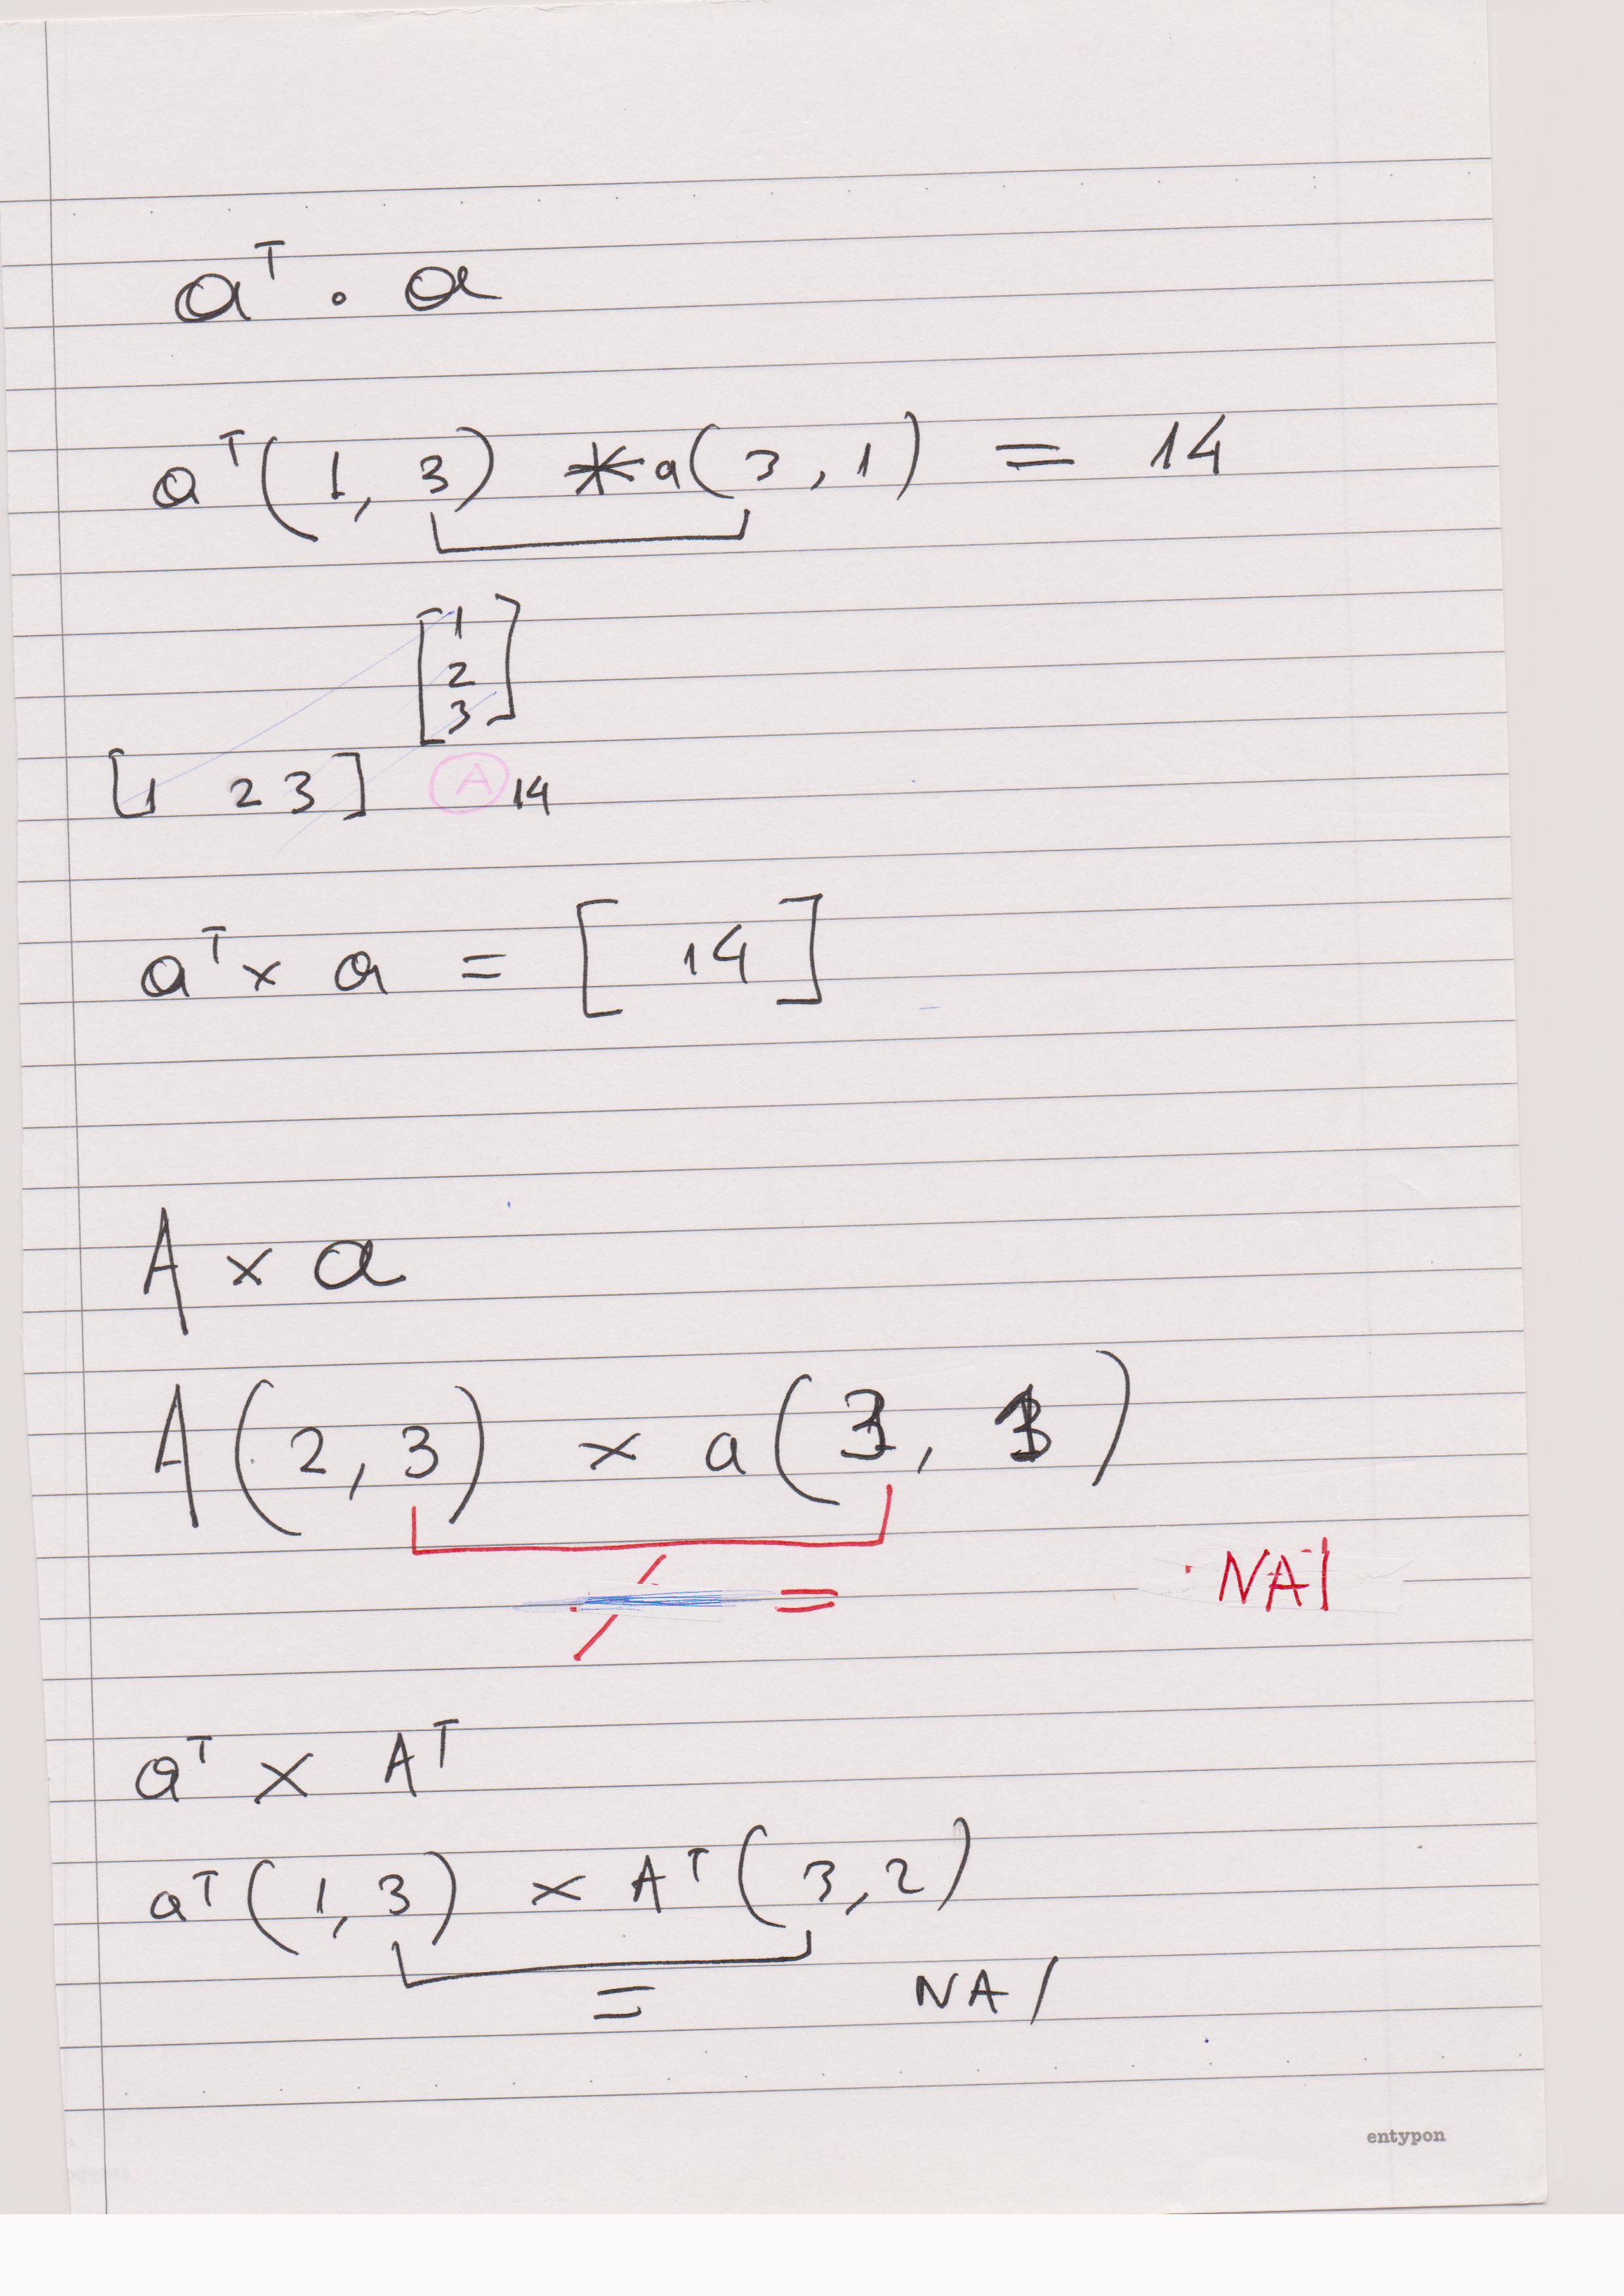 aᵀ · a
aᵀ(1, 3) * a(3, 1) = 14
[1
2
3]
[1 2 3] A 14
aᵀ × a = [14]
A × a
A(2, 3) × a(3, 1)
= NAI
aᵀ × Aᵀ
aᵀ(1, 3) × Aᵀ(3, 2)
= NAI
entypon